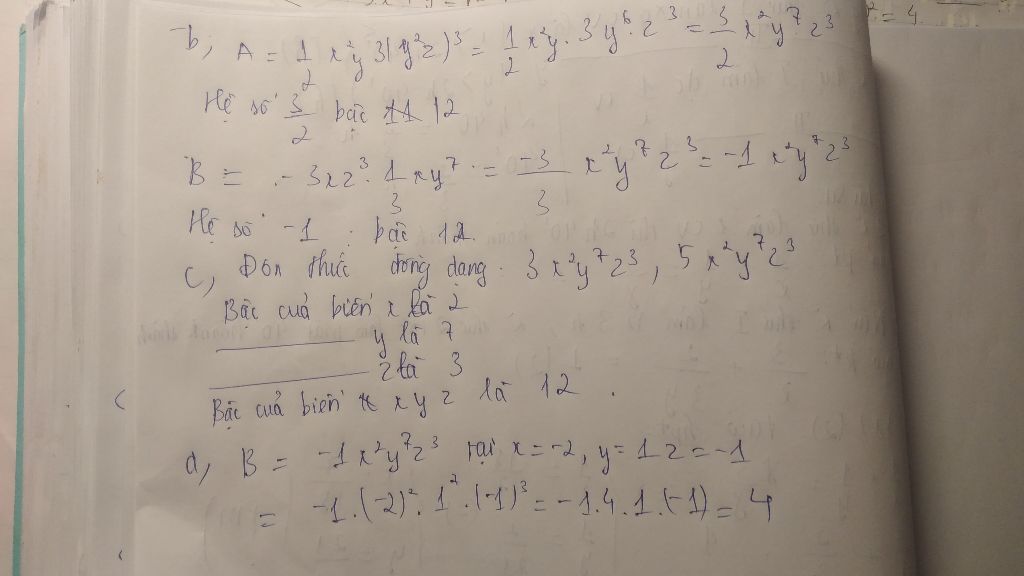 b, A = 1/2 x²y 3(y²z)³ = 1/2 x²y . 3y⁶.z³ = 3/2 x²y⁷z³
Hệ số 3/2 bậc 11 12
B = - 3xz³. 1/3 xy⁷ = -3/3 x²y⁷z³ = -1 x²y⁷z³
Hệ số -1 : bậc 12.
c, Đơn thức đồng dạng . 3x²y⁷z³, 5x²y⁷z³
Bậc của biến x là 2
y là 7
z là 3
Bậc của biến x y z là 12 .
d, B = -1x²y⁷z³ tại x = -2, y = 1 z = -1
= -1.(-2)².1⁷.(-1)³ = -1.4.1.(-1) = 4